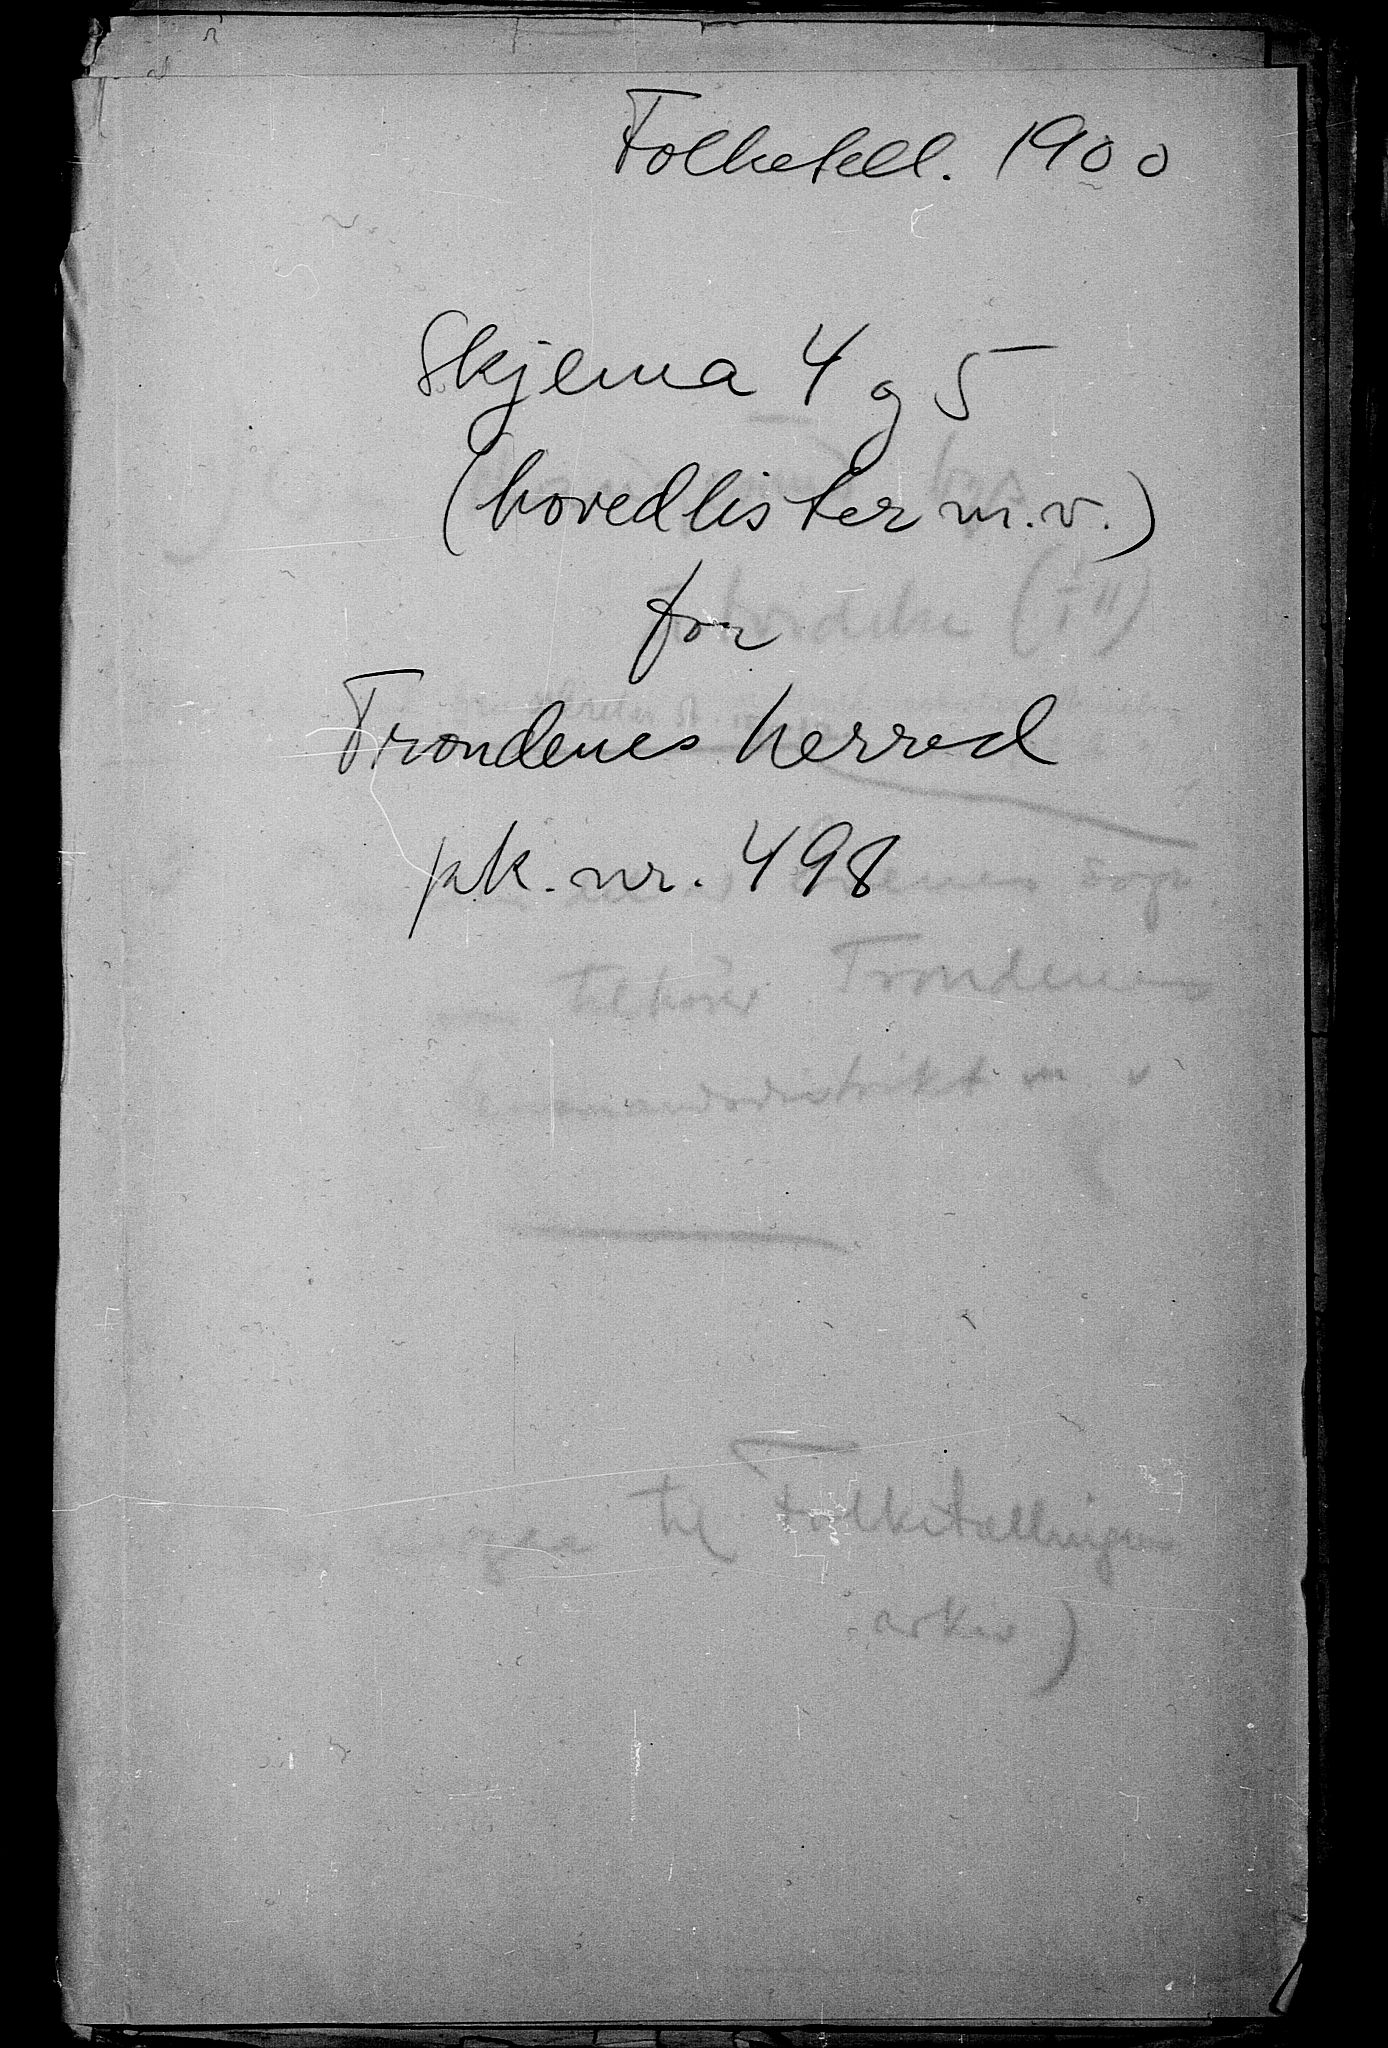 Folketell. 1900
Skjema 4 og 5
(hovedlister m.v.)
for
Trondenes herred
pk. nr. 498
tilhører Trondenes
til Folketællingens
arkiv)